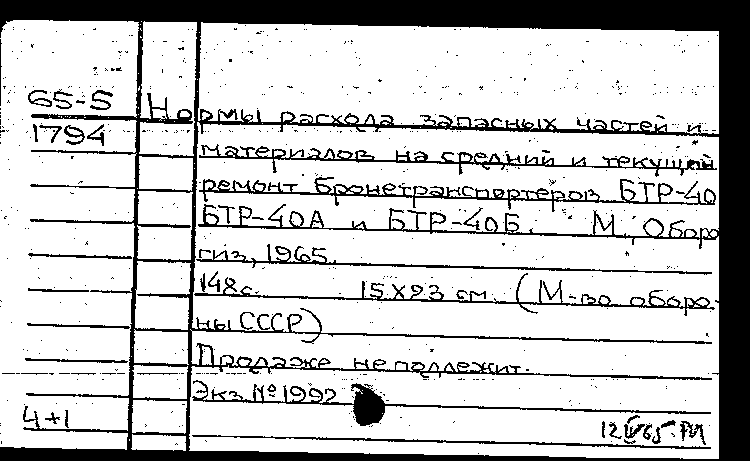 65-5
1794
Нормы расхода запасных частей и
материалов на средний и текущий
ремонт бронетранспортеров БТР-40
БТР-40А и БТР-40Б. М., Оборо
гиз, 1965.
148с. 15X23 см. (М-во оборо-
ны СССР)
Продаже не подлежит.
Экз. № 1992
4+1